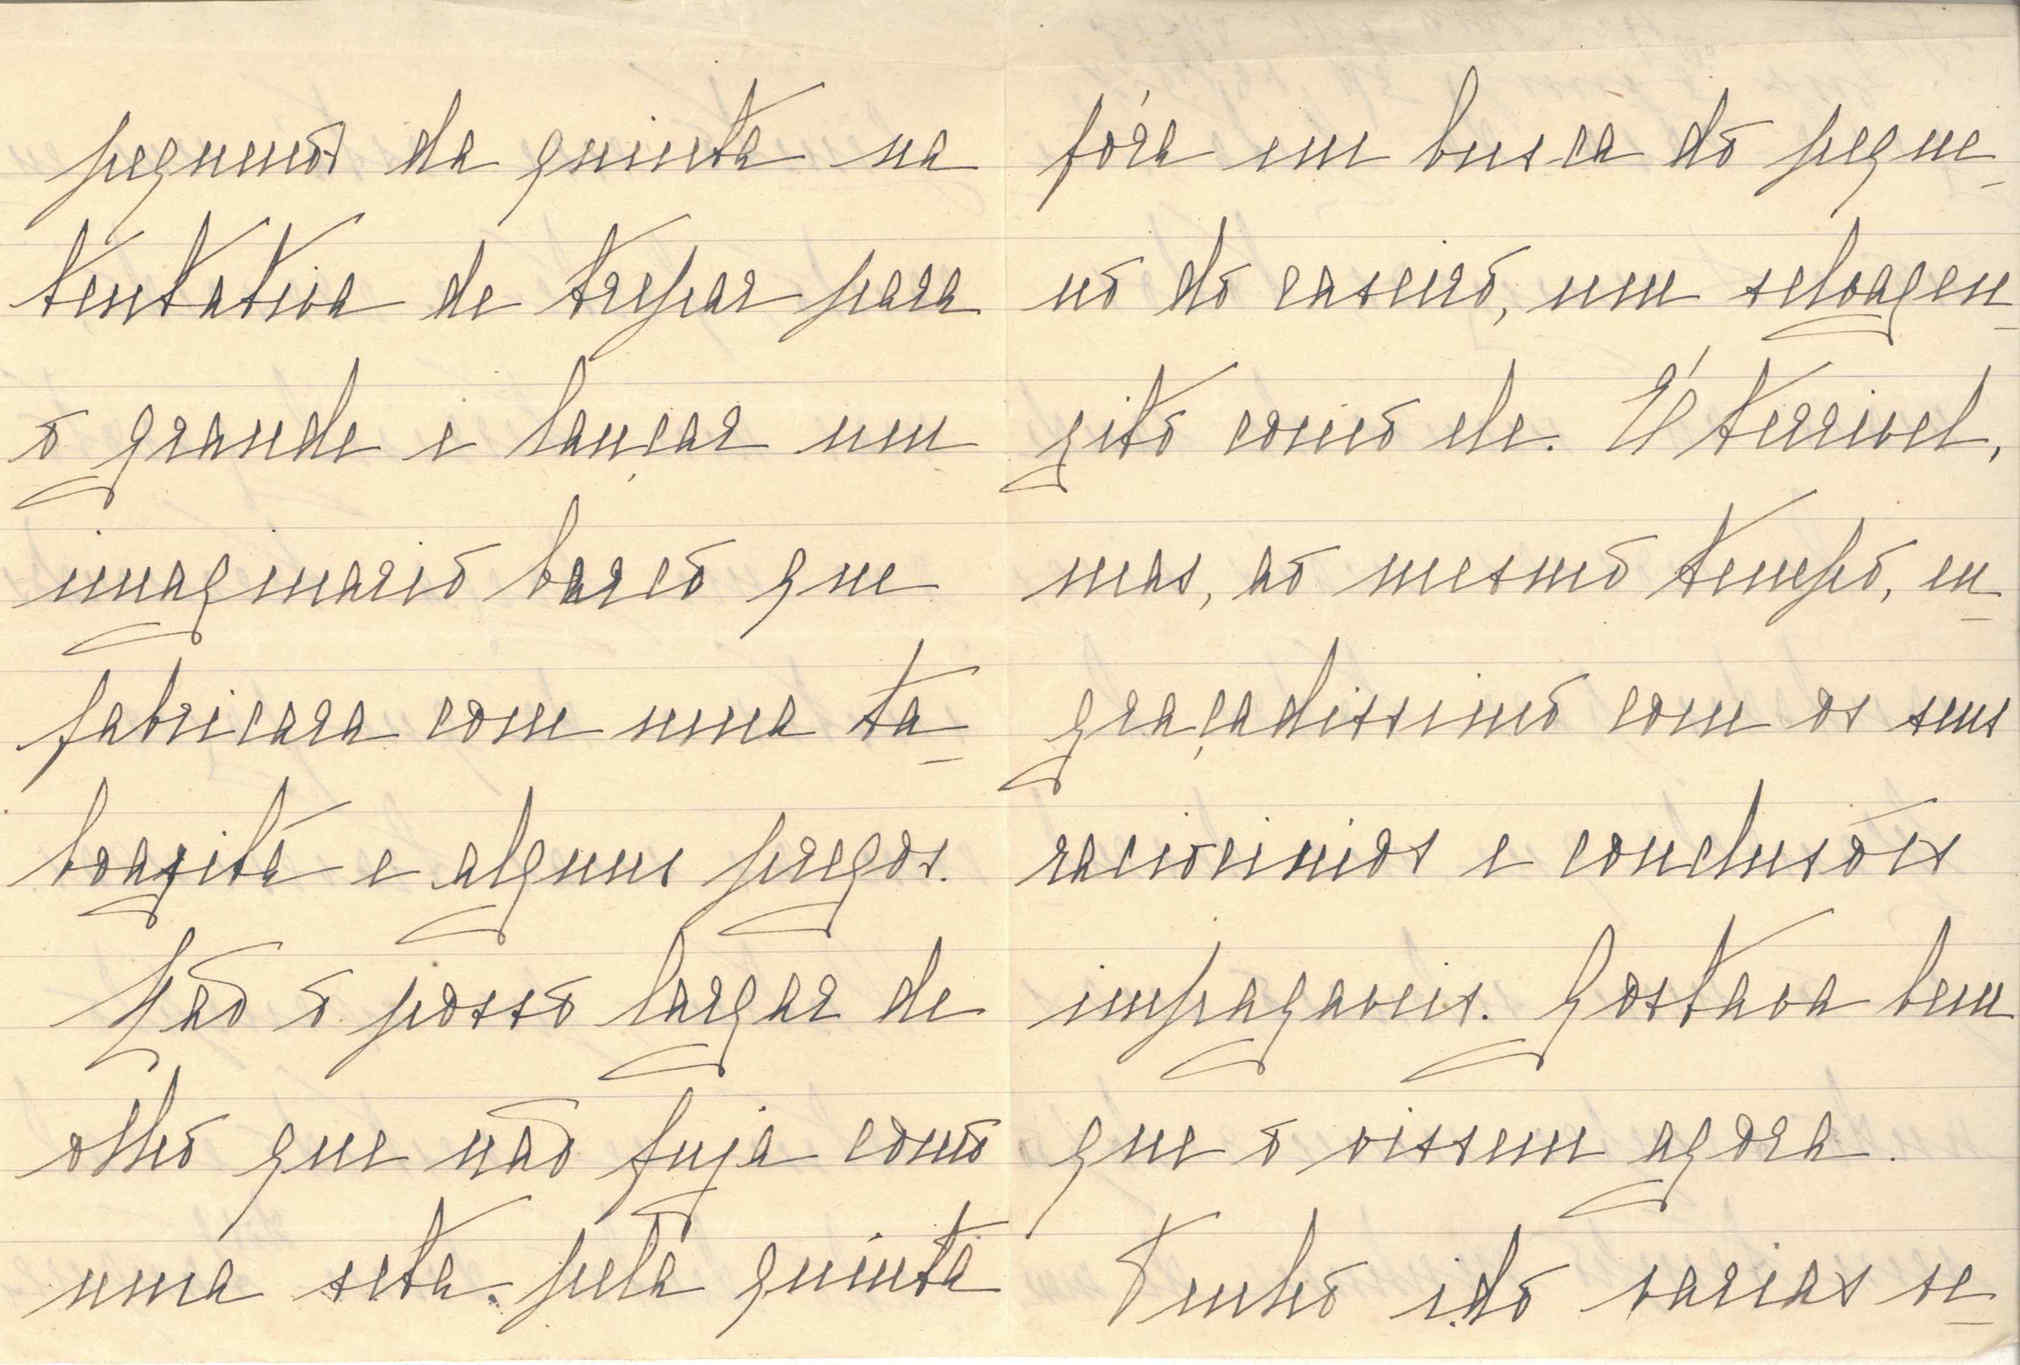 pequenos da quinta na
tentativa de trepar para
o grande e lançar um
imaginario barco que
fabricara com uma ta-
boazita e alguns pregos.
Não o posso largar de
olho que não fuja como
uma seta pela quinta
fóra em busca do peque-
no do caseiro, um selvagen-
zito como ele. É terrivel,
mas, ao mesmo tempo, en-
graçadissimo com os seus
raciocinios e conclusões
impagaveis. Gostava bem
que o vissem agora.
Tenho ido varias ve-